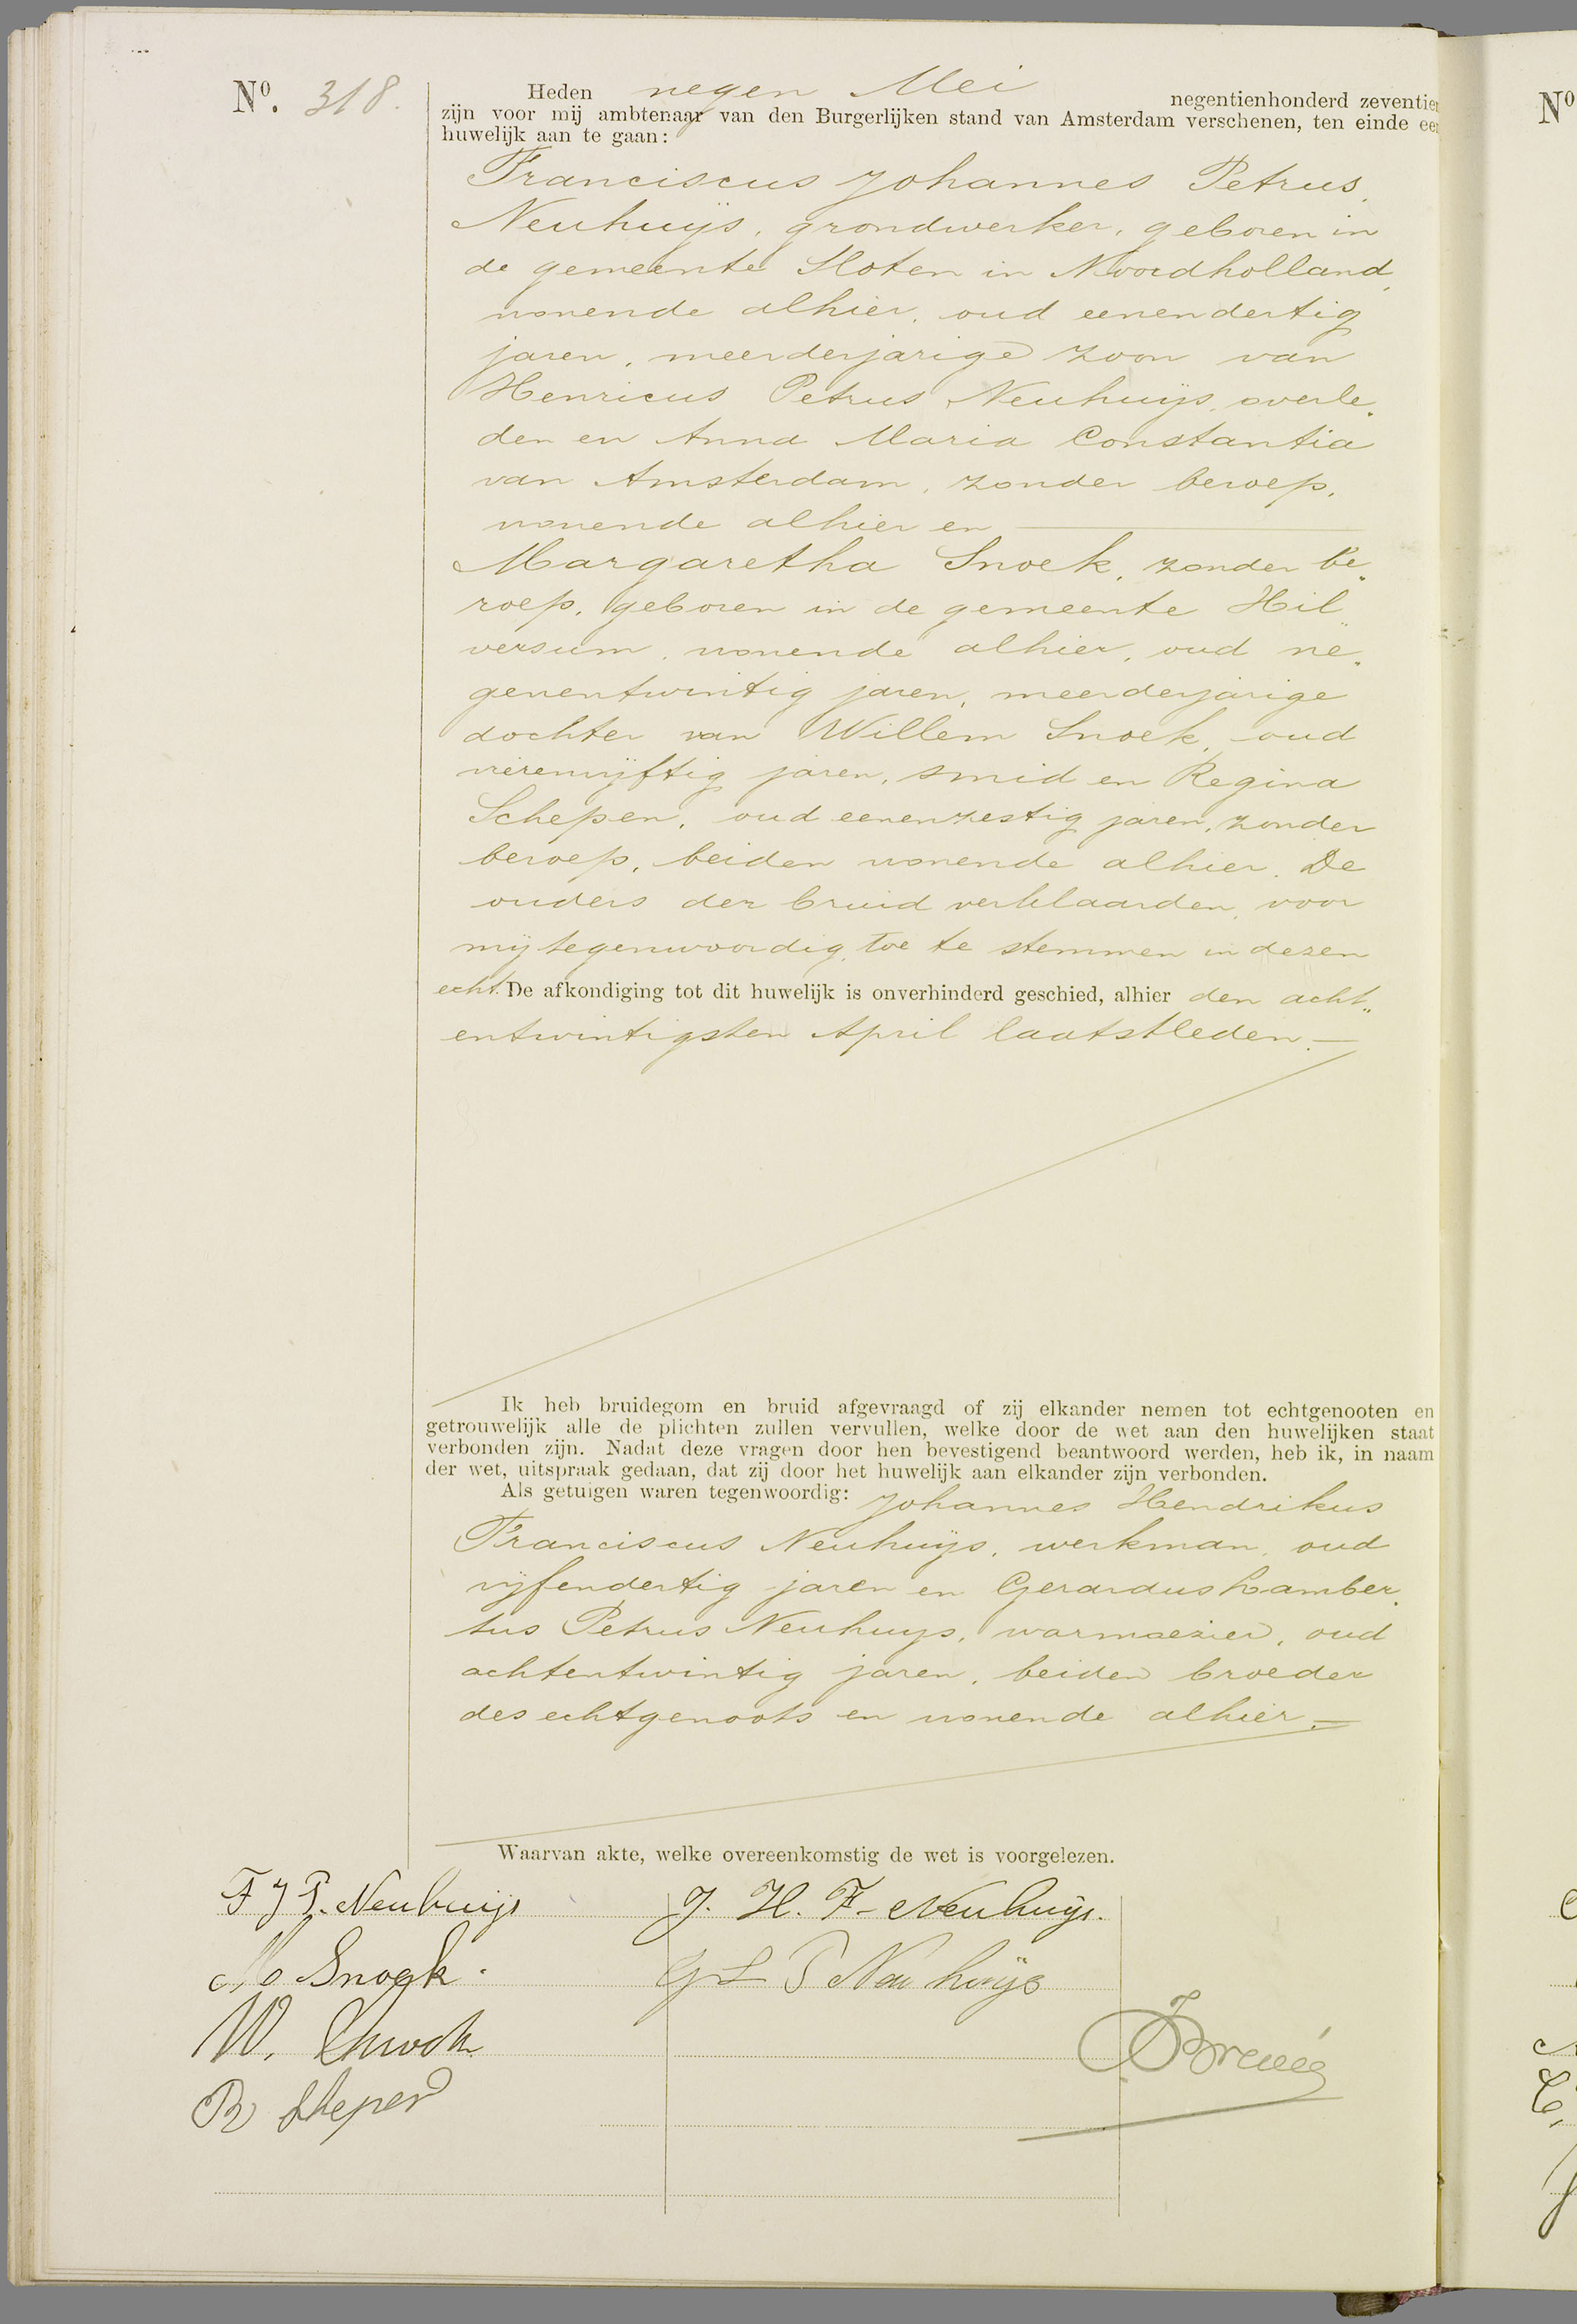 Nº. 318.
Heden negen Mei negentienhonderd zeventien
zijn voor mij ambtenaar van den Burgerlijken stand van Amsterdam verschenen, ten einde een
huwelijk aan te gaan:
Franciscus Johannes Petrus
Neuhuijs, grondwerker, geboren in
de gemeente Sloten in Noordholland,
wonende alhier, oud eenendertig
jaren, meerderjarige zoon van
Henricus Petrus Neuhuijs, overle„
den en Anna Maria Constantia
van Amsterdam, zonder beroep,
wonende alhier en
Margaretha Snoek, zonder be„
roep, geboren in de gemeente Hil„
versum, wonende alhier, oud ne„
genentwintig jaren, meerderjarige
dochter van Willem Snoek, oud
vierenvijftig jaren, smid en Regina
Schepen, oud eenenzestig jaren, zonder
beroep, beiden wonende alhier. De
ouders der bruid verklaarden, voor
mij tegenwoordig, toe te stemmen in dezen
echt. De afkondiging tot dit huwelijk is onverhinderd geschied, alhier den acht„
entwintigsten April laatstleden.
Ik heb bruidegom en bruid afgevraagd of zij elkander nemen tot echtgenooten en
getrouwelijk alle de plichten zullen vervullen, welke door de wet aan den huwelijken staat
verbonden zijn. Nadat deze vragen door hen bevestigend beantwoord werden, heb ik, in naam
der wet, uitspraak gedaan, dat zij door het huwelijk aan elkander zijn verbonden.
Als getuigen waren tegenwoordig: Johannes Hendrikus
Franciscus Neuhuijs, werkman, oud
vijfendertig jaren en Gerardus Lamber„
tus Petrus Neuhuys, warmoezier, oud
achtentwintig jaren, beiden broeder
des echtgenoots en wonende alhier.
Waarvan akte, welke overeenkomstig de wet is voorgelezen.
F J P. Neuhuijs J. H. F. Neuhuijs.
M Snoek. G L P Neuhuijs
W. Snoek
R Schepen
Nº